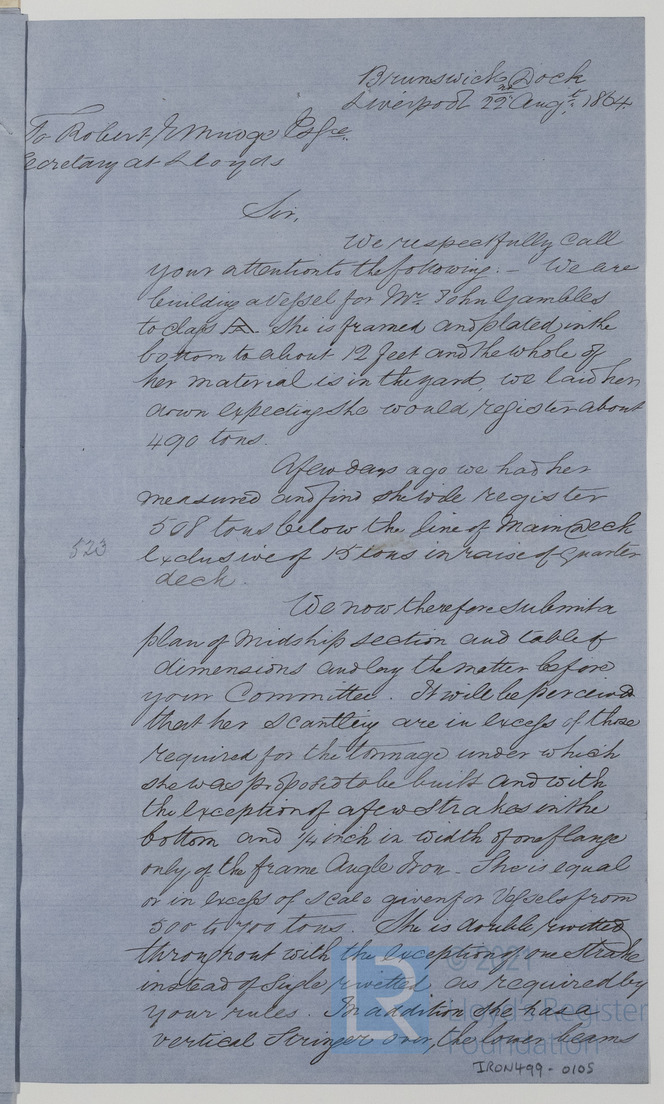 Brunswick Dock
Liverpool 22nd Augt. 1864.
To Robert Esqre.
Secretary at Lloyds
Sir,
We respectfully call
your attention to the following:- We are
building a Vessel for Mr. John Gambles
to class A. She is framed and plated in the
bottom to about 12 feet and the whole of
her material is in the yard, we laid her
down expecting she would register about
490 tons.
A few days ago we had her
measured and find she will register
508 tons below the line of Main Deck
exclusive of 15 tons in raise of quarter
deck.
523
We now therefore submit a
plan of Midship section and table of
dimensions and lay the matter before
your Committee. It will be perceived
that her scantling are in excess of those
required for the tonnage under which
she was proposed to be built and with
the exception of a few strakes in the
bottom and 1/4 inch in width of one flange
only of the frame Angle Iron. She is equal
or in excess of scale given for Vessels from
500 to 700 tons. She is double rivitted
throughout with the exception of one strake
instead of single rivetted as required by
your rules. In addition she has a
vertical Stringer over, the lower beams
LR
© 2021
Lloyd's Register
Foundation
IRON499-0105